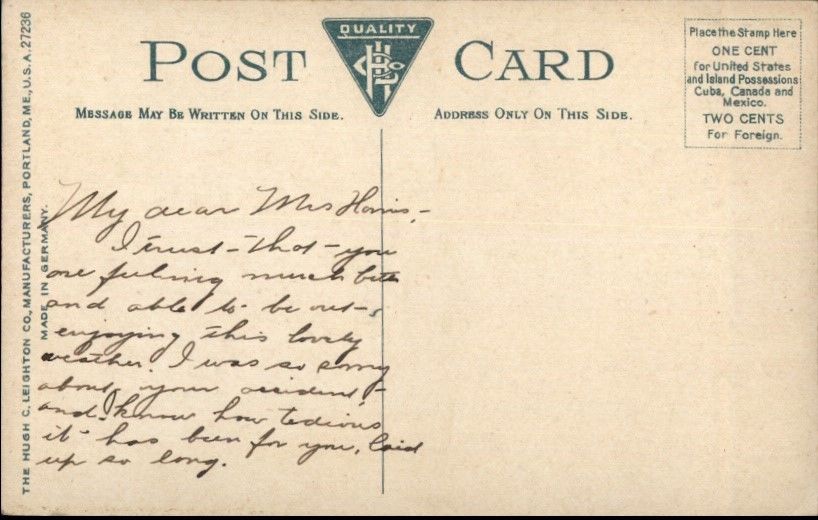 THE HUGH C. LEIGHTON CO., MANUFACTURERS, PORTLAND, ME., U.S.A. 27236
MADE IN GERMANY.
POST CARD
QUALITY
MESSAGE MAY BE WRITTEN ON THIS SIDE.
ADDRESS ONLY ON THIS SIDE.
Place the Stamp Here
ONE CENT
for United States
and Island Possessions
Cuba, Canada and
Mexico.
TWO CENTS
For Foreign.
My dear Mrs Harris,-
I trust that you
are feeling much
and able to be out
enjoying this lovely
weather. I was so sorry
about your accident
and I know how tedious
it has been for you, laid
up so long.